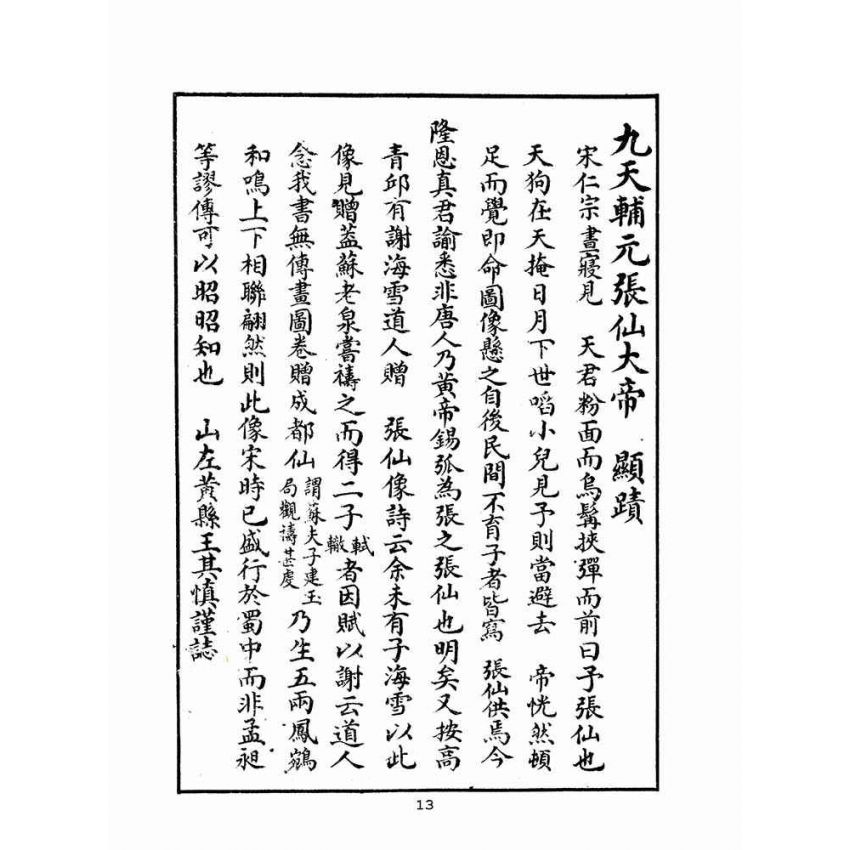 九天輔元張仙大帝　顯蹟
宋仁宗晝寢見　天君粉面而烏髯挾彈而前曰予張仙也
天狗在天掩日月下世啗小兒見予則當避去　帝恍然頓
足而覺即命圖像懸之自後民間不育子者皆寫　張仙供焉今
隆恩真君諭悉非唐人乃黃帝錫弧為張之張仙也明矣又按高
青邱有謝海雪道人贈　張仙像詩云余未有子海雪以此
像見贈葢蘇老泉嘗禱之而得二子軾轍者因賦以謝云道人
念我書無傳畫圖卷贈成都仙謂蘇夫子建玉局觀禱甚虔乃生五兩鳳鵷
和鳴上下相聯翩然則此像宋時已盛行於蜀中而非孟昶
等謬傳可以昭昭知也　山左黃縣王其慎謹誌
13